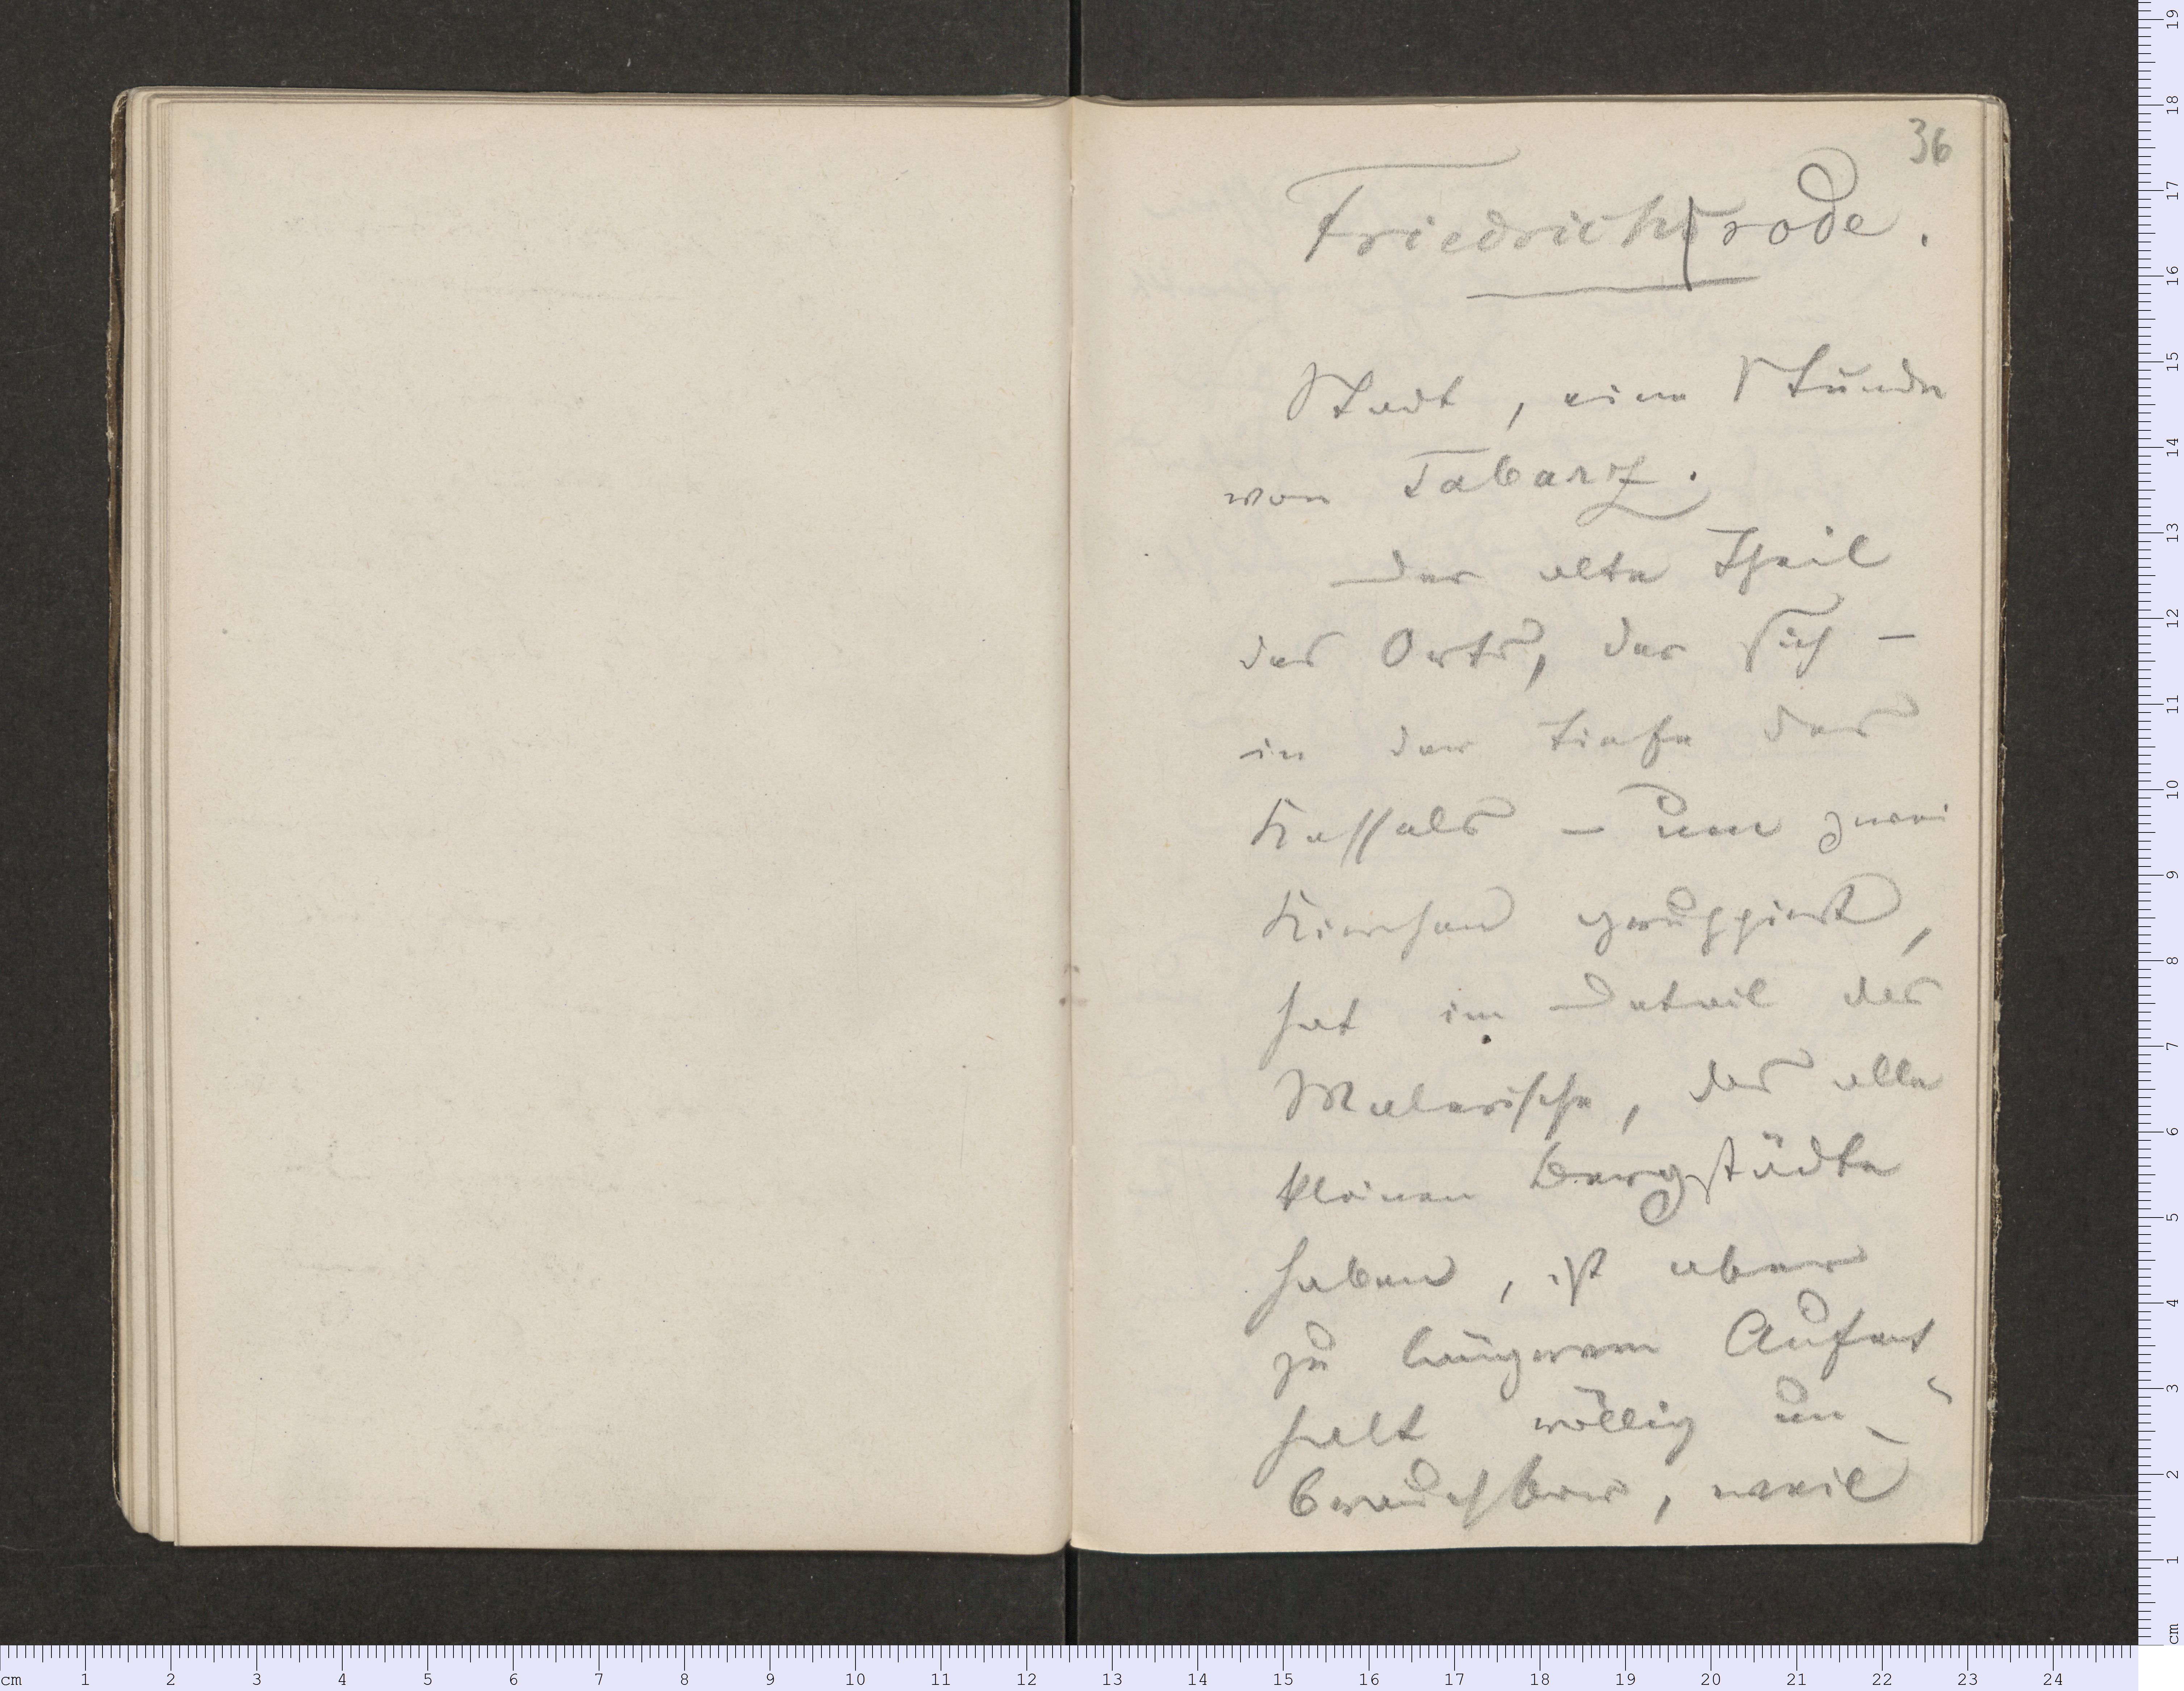 36
Friedrichsrode.
Stadt, eine Stunde
von Tabarz.
Der alte Theil
des Orts, der sich –
in der Tiefe des
Kessels – um zwei
Kirchen gruppirt,
hat im Detail das
Malerische, das alle
kleinen Bergstädte
haben, ist aber
zu längerem Aufent
halt völlig un-
brauchbar, weil